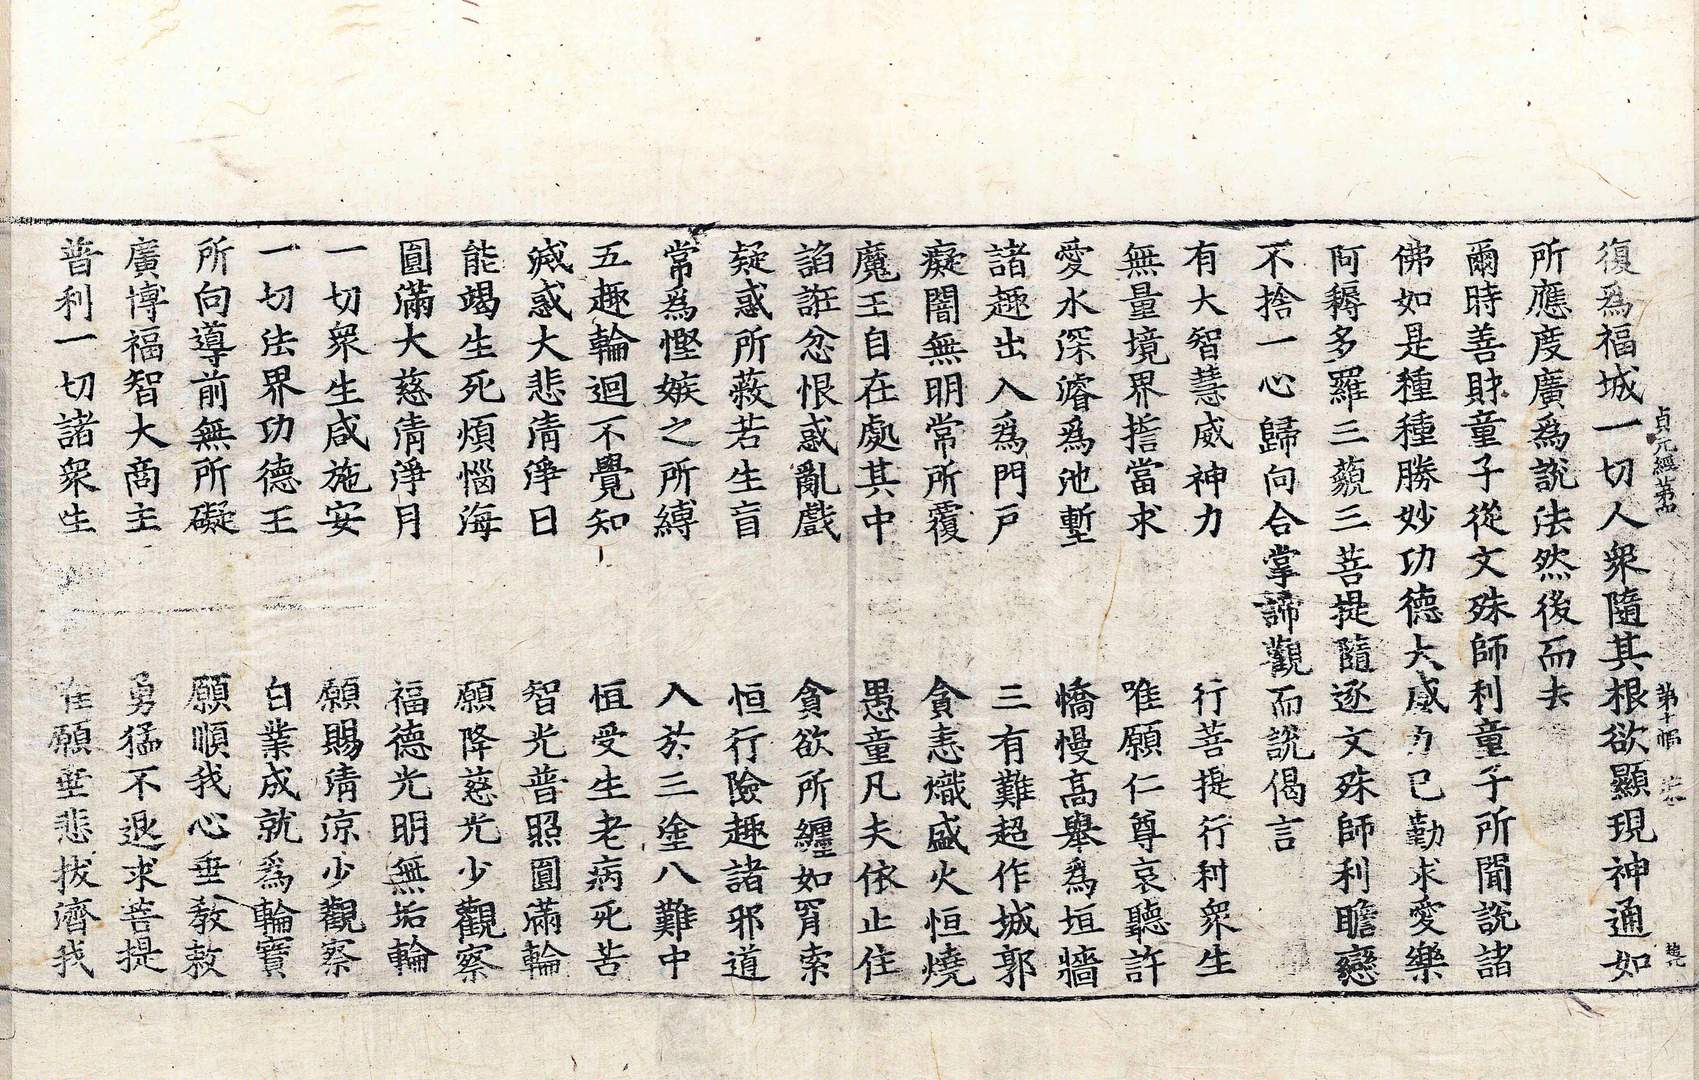 貞元經第四　第十幅
復爲福城一切人衆隨其根欲顯現神通如
所應度廣爲說法然後而去
爾時善財童子從文殊師利童子所聞說諸
佛如是種種勝妙功德大威力已勤求愛樂
阿耨多羅三藐三菩提隨逐文殊師利瞻戀
不捨一心歸向合掌諦觀而說偈言
有大智慧威神力　行菩提行利衆生
無量境界誓當求　唯願仁尊哀聽許
愛水深濬爲池塹　憍慢高舉爲垣牆
諸趣出入爲門戶　三有難超作城郭
癡闇無明常所覆　貪恚熾盛火恒燒
魔王自在處其中　愚童凡夫依止住
諂誑忿恨惑亂戲　貪欲所纏如罥索
疑惑所蔽若生盲　恒行險趣諸邪道
常爲慳嫉之所縛　入於三塗八難中
五趣輪迴不覺知　恒受生老病死苦
滅惑大悲清淨日　智光普照圓滿輪
能竭生死煩惱海　願降慈光少觀察
圓滿大慈清淨月　福德光明無垢輪
一切衆生咸施安　願賜清涼少觀察
一切法界功德王　白業成就爲輪寶
所向導前無所礙　願順我心垂教敕
廣博福智大商主　勇猛不退求菩提
普利一切諸衆生　唯願垂悲拔濟我